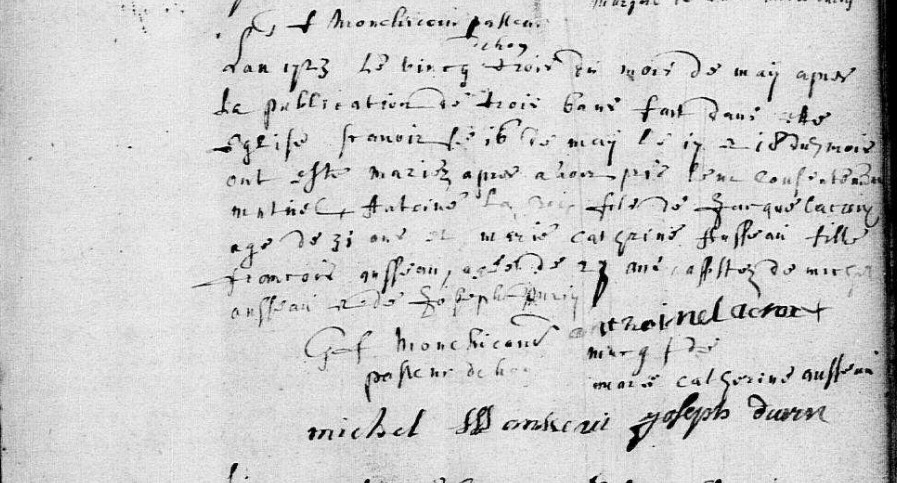 G f Monchicour pasteur
Lan 1723 Le vincq trois du mois de may apres
La publication de trois bans fait dans cette
Eglise scavoir le 16 de may le 17 et 18 du mois
ont esté mariez apres avoir pris leur consentement
mutuel Antoine La croix fils de Jacque Lacroix
agé de 31 ans et marie catherine Ausseau fille
francois ausseau, de 23 ans assistez de michel
ausseau et de Joseph
G f Monchicour antroinelacroix
pasteur de marq de
marie catherine ausseau
michel Joseph